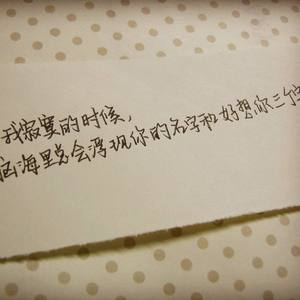 我寂寞的时候，
脑海里总会浮现你的名字和好想你三个字